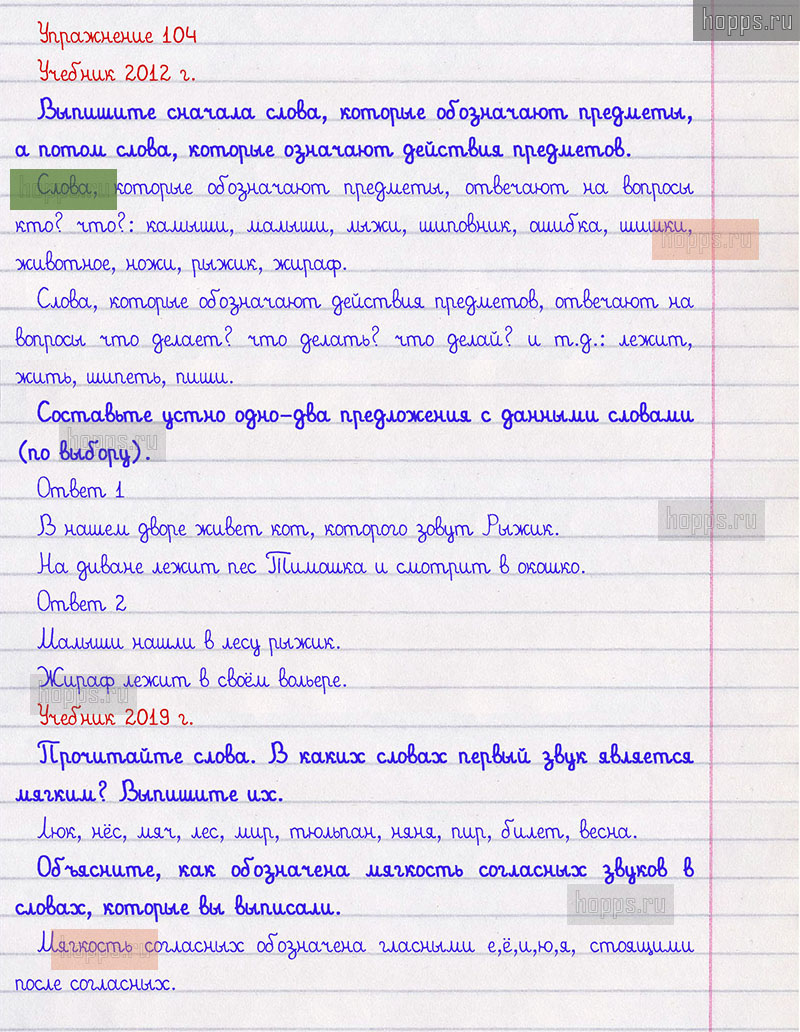 hopps.ru
Упражнение 104
Учебник 2012 г.
Выпишите сначала слова, которые обозначают предметы,
а потом слова, которые означают действия предметов.
Слова, которые обозначают предметы, отвечают на вопросы
кто? что?: камыши, малыши, лыжи, шиповник, ошибка, шишки,
животное, ножи, рыжик, жираф.
Слова, которые обозначают действия предметов, отвечают на
вопросы что делает? что делать? что делай? и т.д.: лежит,
жить, шипеть, пиши.
Составьте устно одно-два предложения с данными словами
(по выбору).
Ответ 1
В нашем дворе живет кот, которого зовут Рыжик.
На диване лежит пес Тимошка и смотрит в окошко.
Ответ 2
Малыши нашли в лесу рыжик.
Жираф лежит в своём вольере.
Учебник 2019 г.
Прочитайте слова. В каких словах первый звук является
мягким? Выпишите их.
Люк, нёс, мяч, лес, мир, тюльпан, няня, пир, билет, весна.
Объясните, как обозначена мягкость согласных звуков в
словах, которые вы выписали.
Мягкость согласных обозначена гласными е,ё,и,ю,я, стоящими
после согласных.
hopps.ru
hopps.ru
hopps.ru
hopps.ru
hopps.ru
hopps.ru
hopps.ru